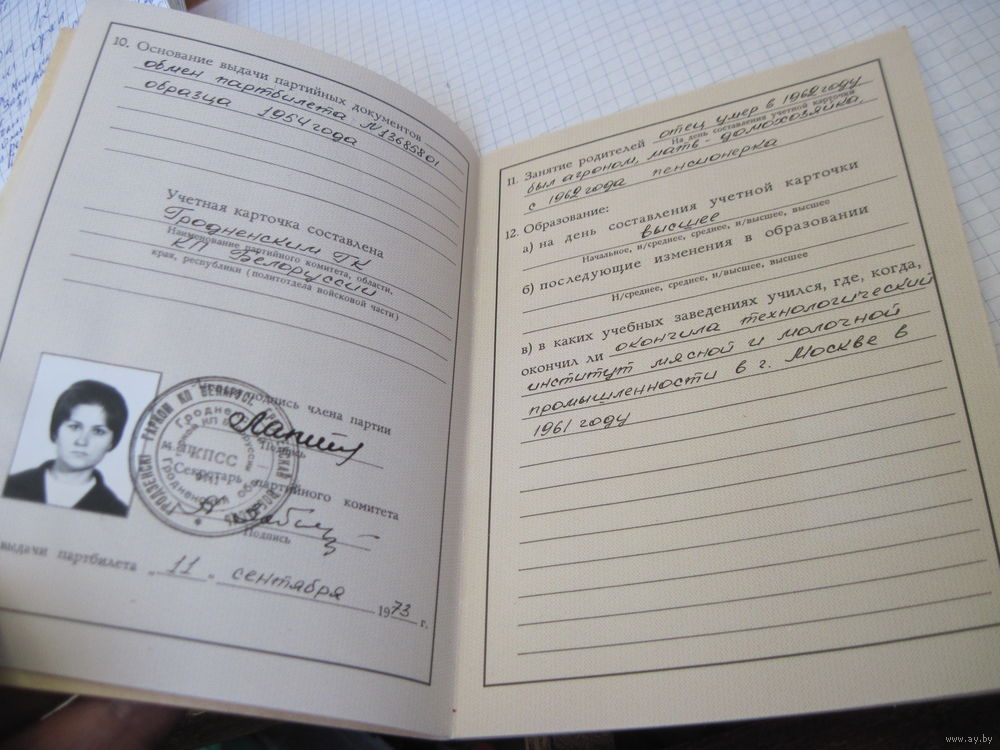 10. Основание выдачи партийных документов
обмен партбилета N13685801
образца 1954 года
Учетная карточка составлена
Гродненским ГК
Наименование партийного комитета, области,
КП Белоруссии
края, республики (политотдела войсковой части)
подпись члена партии
Подпись
КПСС
Секретарь партийного комитета
Подпись
выдачи партбилета „11" сентября 1973 г.
11. Занятие родителей отец умер в 1962 году
На день составления учетной карточки
был агроном, мать - домохозяйка,
с 1962 года пенсионерка
12. Образование:
а) на день составления учетной карточки
высшее
Начальное, н/среднее, среднее, н/высшее, высшее
б) последующие изменения в образовании
Н/среднее, среднее, н/высшее, высшее
в) в каких учебных заведениях учился, где, когда,
окончил ли окончила технологический
институт мясной и молочной
промышленности в г. Москве в
1961 году
www.ay.by